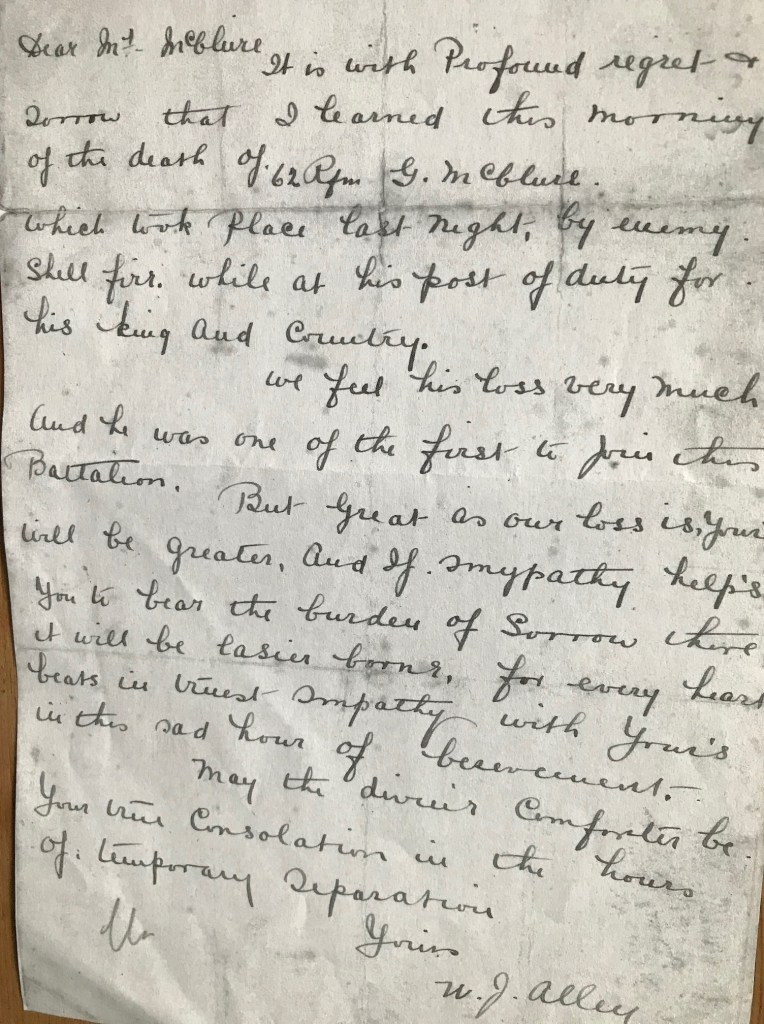 Dear Mr McClure
It is with Profound regret &
Sorrow that I learned this morning
of the death of. 62 Rfm G. McClure.
which took Place last Night, by enemy.
Shell fire. while at his post of duty for.
his king And Country.
we feel his loss very much
And he was one of the first to Join this
Battalion. But Great as our loss is, Your
will be greater, And If. smypathy help's
You to bear the burden of Sorrow there
it will be easier borne, for every heart
beats in truest smpathy with Your's
in this sad hour of berevement.
May the divine Comforter be.
Your true Consolation in the hours
of. temporary Separation
Yours
W. J. Alley